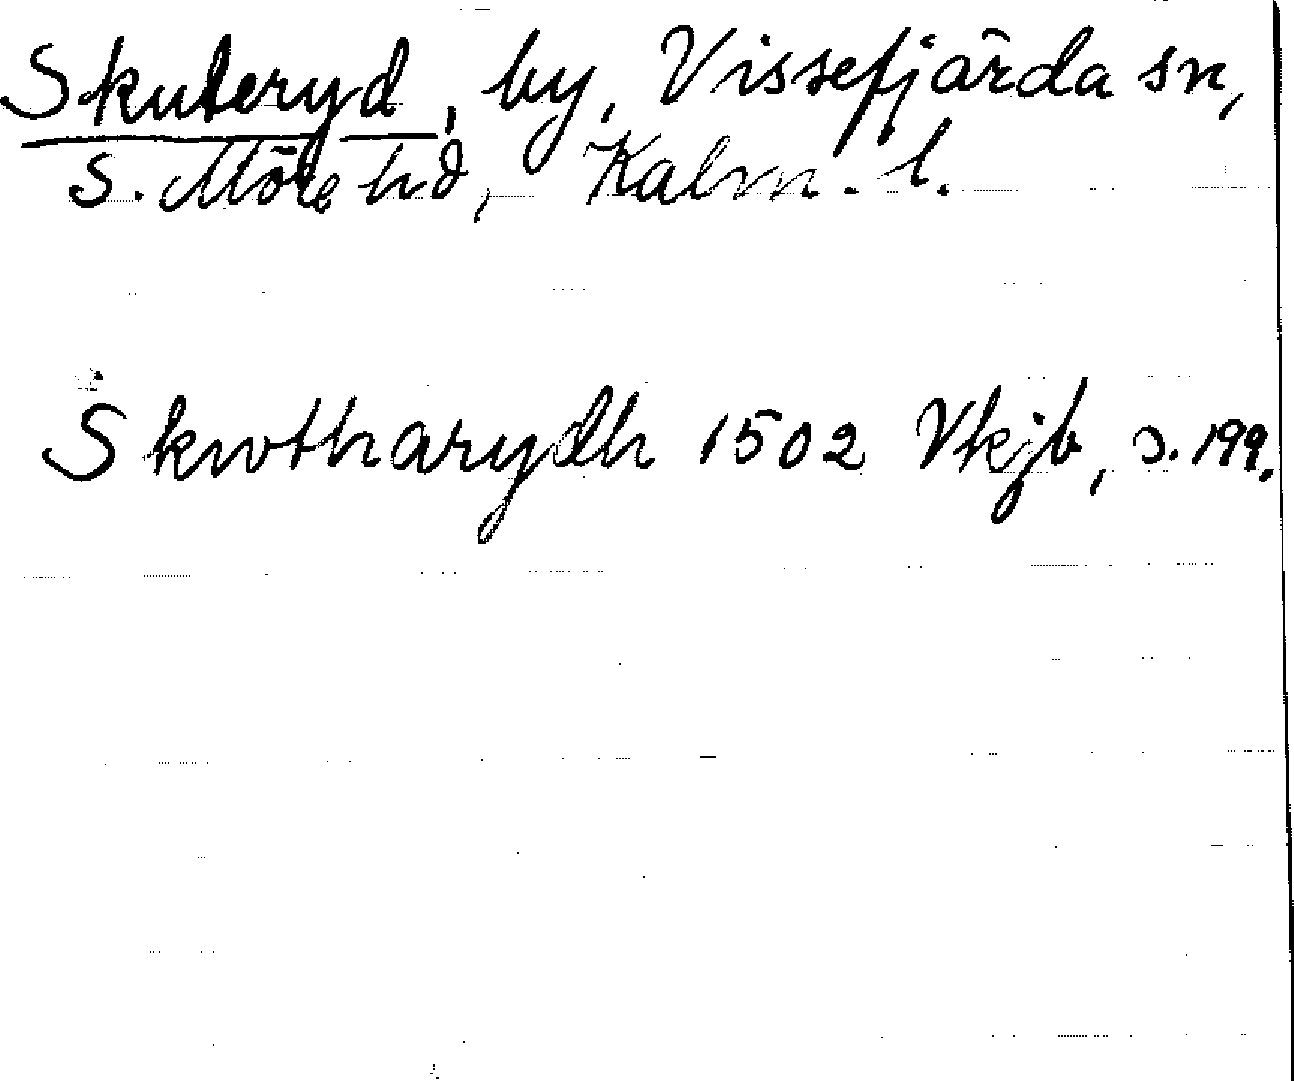 Skuteryd, by, Vissefjärda sn,
S. Möre hd, Kalm. l.
Skwtharydh 1502 Vkjb, s. 199.